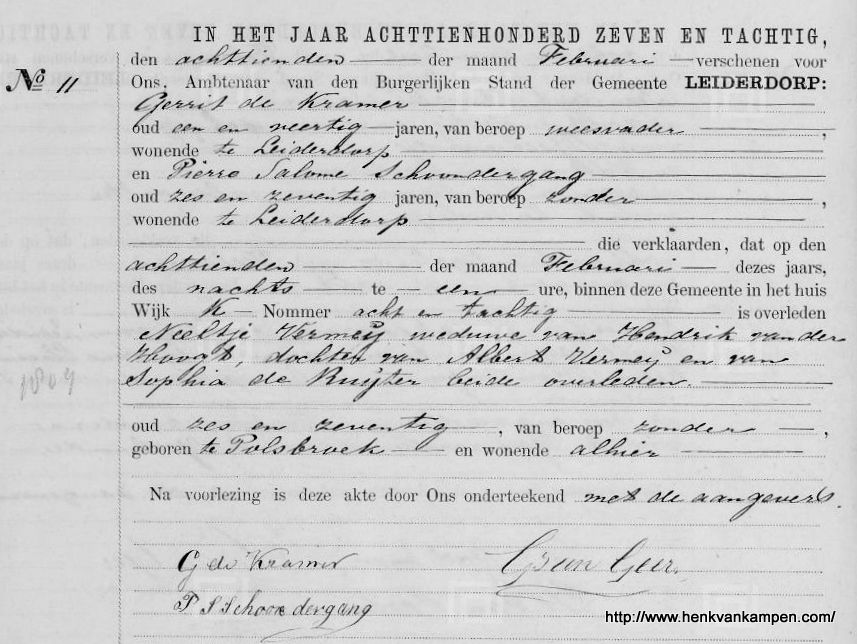 IN HET JAAR ACHTTIENHONDERD ZEVEN EN TACHTIG,
den achttienden der maand Februari verschenen voor
No 11 Ons, Ambtenaar van den Burgerlijken Stand der Gemeente LEIDERDORP:
Gerrit de Kramer
oud een en veertig jaren, van beroep weesvader,
wonende te Leiderdorp
en Pierre Salome Schoondergang
oud zes en zeventig jaren, van beroep zonder,
wonende te Leiderdorp
die verklaarden, dat op den
achttienden der maand Februari dezes jaars,
des nachts te een ure, binnen deze Gemeente in het huis
Wijk K Nommer acht en tachtig is overleden
Neeltje Vermeij weduwe van Hendrik van der
Hoogt, dochter van Albert Vermeij en van
Sophia de Ruijter beide overleden.
oud zes en zeventig, van beroep zonder,
geboren te Polsbroek en wonende alhier
Na voorlezing is deze akte door Ons onderteekend met de aangevers.
G de Kramer
P S Schoondergang
http://www.henkvankampen.com/